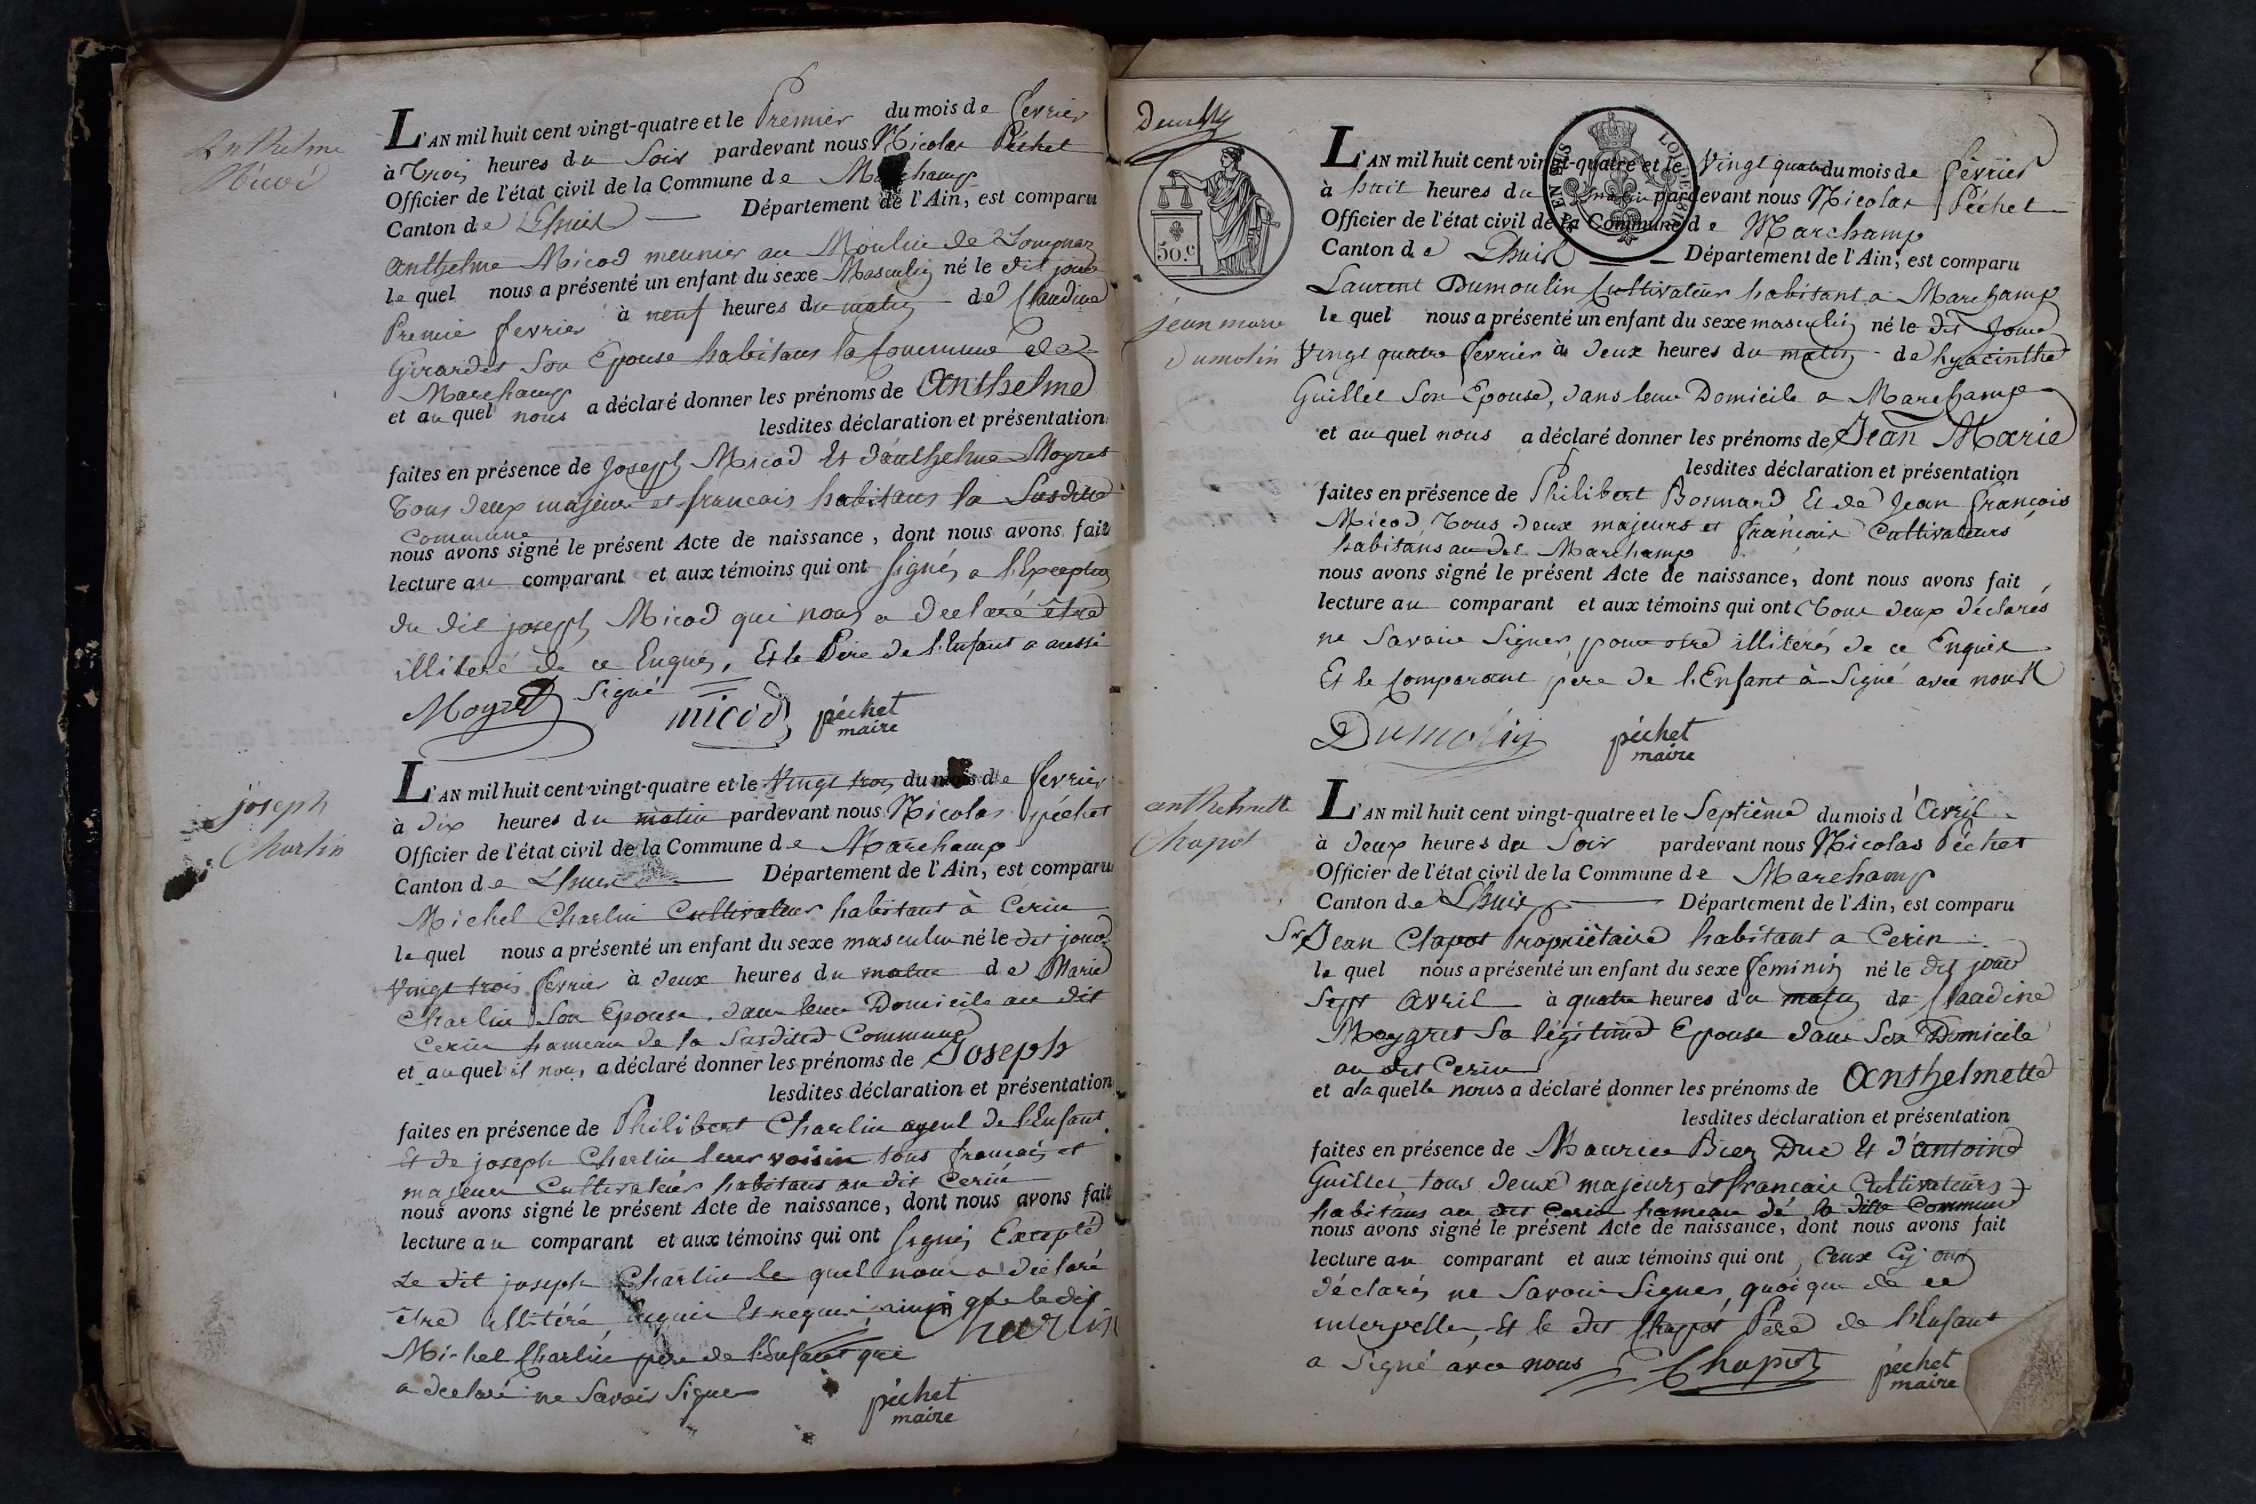 Anthelme
Micod
L'AN mil huit cent vingt-quatre et le Premier du mois de fevrier
à Trois heures du Soir pardevant nous Nicolas Péchet
Officier de l'état civil de la Commune de Marchamp
Canton de Lhuis Département de l'Ain, est comparu
anthelme Micod meunier au Moulin de
le quel nous a présenté un enfant du sexe Masculin né le dit jour
Premier fevrier à neuf heures du matin de Claudine
Girardet Son Epouse habitans la Commune de
Marchamp
et au quel nous a déclaré donner les prénoms de Anthelme
lesdites déclaration et présentation
faites en présence de Joseph Micod Et d'anthelme Moyret
Tous deux majeurs et francais habitans la Susditte
Commune
nous avons signé le présent Acte de naissance, dont nous avons fait
lecture au comparant et aux témoins qui ont signés a l'Exception
du dit joseph Micod qui nous a declaré être
illiteré de ce Enquis, Et le Père de l'Enfant a aussi
Signé
Moyret micod péchet
maire
joseph
Charlin
L'AN mil huit cent vingt-quatre et le Vingt trois du mois de fevrier
à dix heures du matin pardevant nous Nicolas péchet
Officier de l'état civil de la Commune de Marchamp
Canton de Lhuis Département de l'Ain, est comparu
Michel Charlin Cultivateur habitant à Cerin
le quel nous a présenté un enfant du sexe masculin né le dit jour
Vingt trois fevrier à deux heures du matin de Marie
Charlin Son Epouse, dans leur Domicile au dit
Cerin hameau de la Susditte Commune
et au quel il nous a déclaré donner les prénoms de Joseph
lesdites déclaration et présentation
faites en présence de Philibert Charlin ayeul de l'Enfant
Et de joseph Charlin leur voisin tous francais et
majeurs Cultivateurs habitans au dit Cerin
nous avons signé le présent Acte de naissance, dont nous avons fait
lecture au comparant et aux témoins qui ont signés Excepté
Le dit joseph Charlin le quel nous a déclaré
être illitéré Enquis Et requis, ainsi que le dit
Charlin
Michel Charlin père de l'Enfant qui
a declaré ne Savoir Signer
péchet
maire
50.c
TIMBRE
LOI DE 1816
jean marie
Dumolin
L'AN mil huit cent vingt-quatre et le Vingt quatre du mois de fevrier
à huit heures du matin pardevant nous Nicolas Péchet
Officier de l'état civil de la Commune de Marchamp
Canton de Lhuis Département de l'Ain, est comparu
Laurent Dumoulin Cultivateur habitant a Marchamp
le quel nous a présenté un enfant du sexe masculin né le dit Jour
Vingt quatre fevrier à deux heures du matin de hyacinthe
Guillet Son Epouse, dans leur Domicile a Marchamp
et au quel nous a déclaré donner les prénoms de Jean Marie
lesdites déclaration et présentation
faites en présence de Philibert Bonnard Et de Jean francois
Micod Tous deux majeurs et francais Cultivateurs
habitans au dit Marchamp
nous avons signé le présent Acte de naissance, dont nous avons fait
lecture au comparant et aux témoins qui ont Tous deux déclarés
ne Savoir Signer, pour etre illiterés de ce Enquis
Et le Comparant père de l'Enfant à Signé avec nous
Dumolin péchet
maire
anthelmette
Chapot
L'AN mil huit cent vingt-quatre et le Septième du mois d'Avril
à deux heures du Soir pardevant nous Nicolas Péchet
Officier de l'état civil de la Commune de Marchamp
Canton de Lhuis Département de l'Ain, est comparu
Sr Jean Chapot Propriétaire habitant a Cerin
le quel nous a présenté un enfant du sexe feminin né le dit jour
Sept Avril à quatre heures du matin de Claudine
Moygret Sa légitime Epouse dans Son Domicile
au dit Cerin
et a la quelle nous a déclaré donner les prénoms de Anthelmette
lesdites déclaration et présentation
faites en présence de Maurice Duc Et d'antoine
Guillet, tous deux majeurs et francais Cultivateurs
habitans au dit Cerin hameau de la dite Commune
nous avons signé le présent Acte de naissance, dont nous avons fait
lecture au comparant et aux témoins qui ont, Ceux Cy ont
déclarés ne Savoir Signer, quoique de ce
interpellés, Et le dit Chapot Père de l'Enfant
a Signé avec nous Chapot péchet
maire